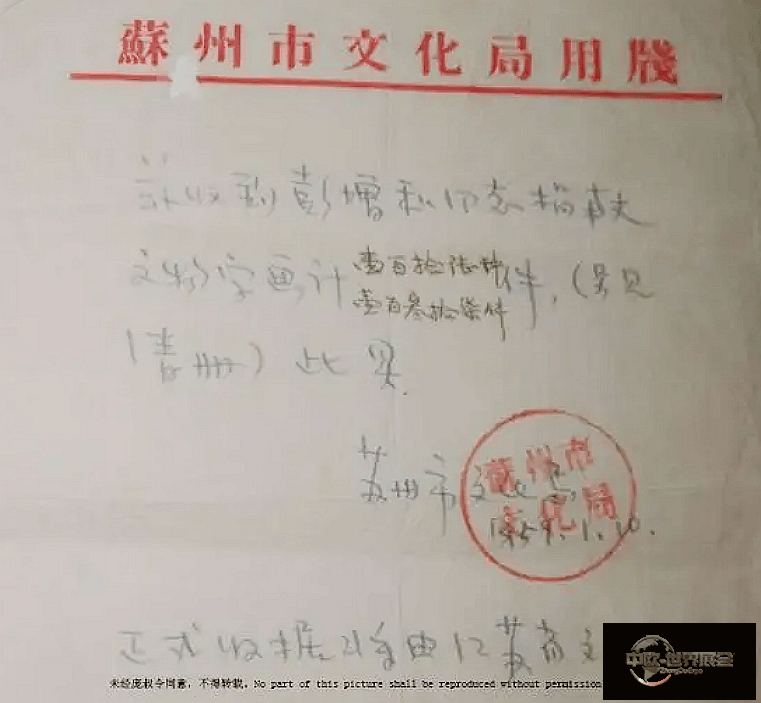 蘇州市文化局用牋
兹收到彭增和同志捐献
文物字画计
壹百叁拾柒件
件,(另见
清册)此具
苏州市文化局
蘇州市
文化局
1959.1.10.
正式收据将由江苏省文
未经庞权令同意,不得转载。No part of this picture shall be reproduced without permission
中欧-世界展会